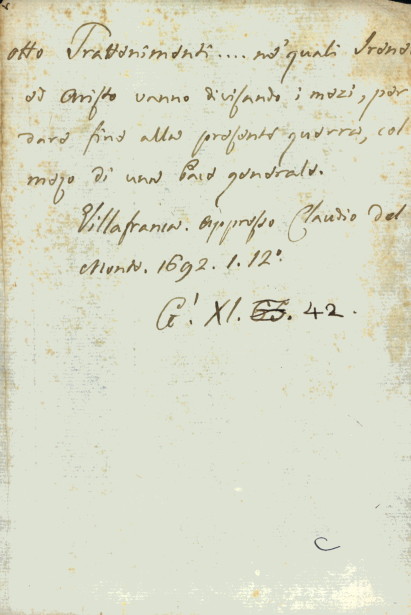 otto Trattenimenti .... ne' quali Irene
ed Aristo vanno divisando i mezi, per
dare fine alla presente guerra, col
mezo di una Pace generale.
Villafranca. Appresso Claudio del
Monte. 1692. 1. 12°.
G'. XI. 42.
C